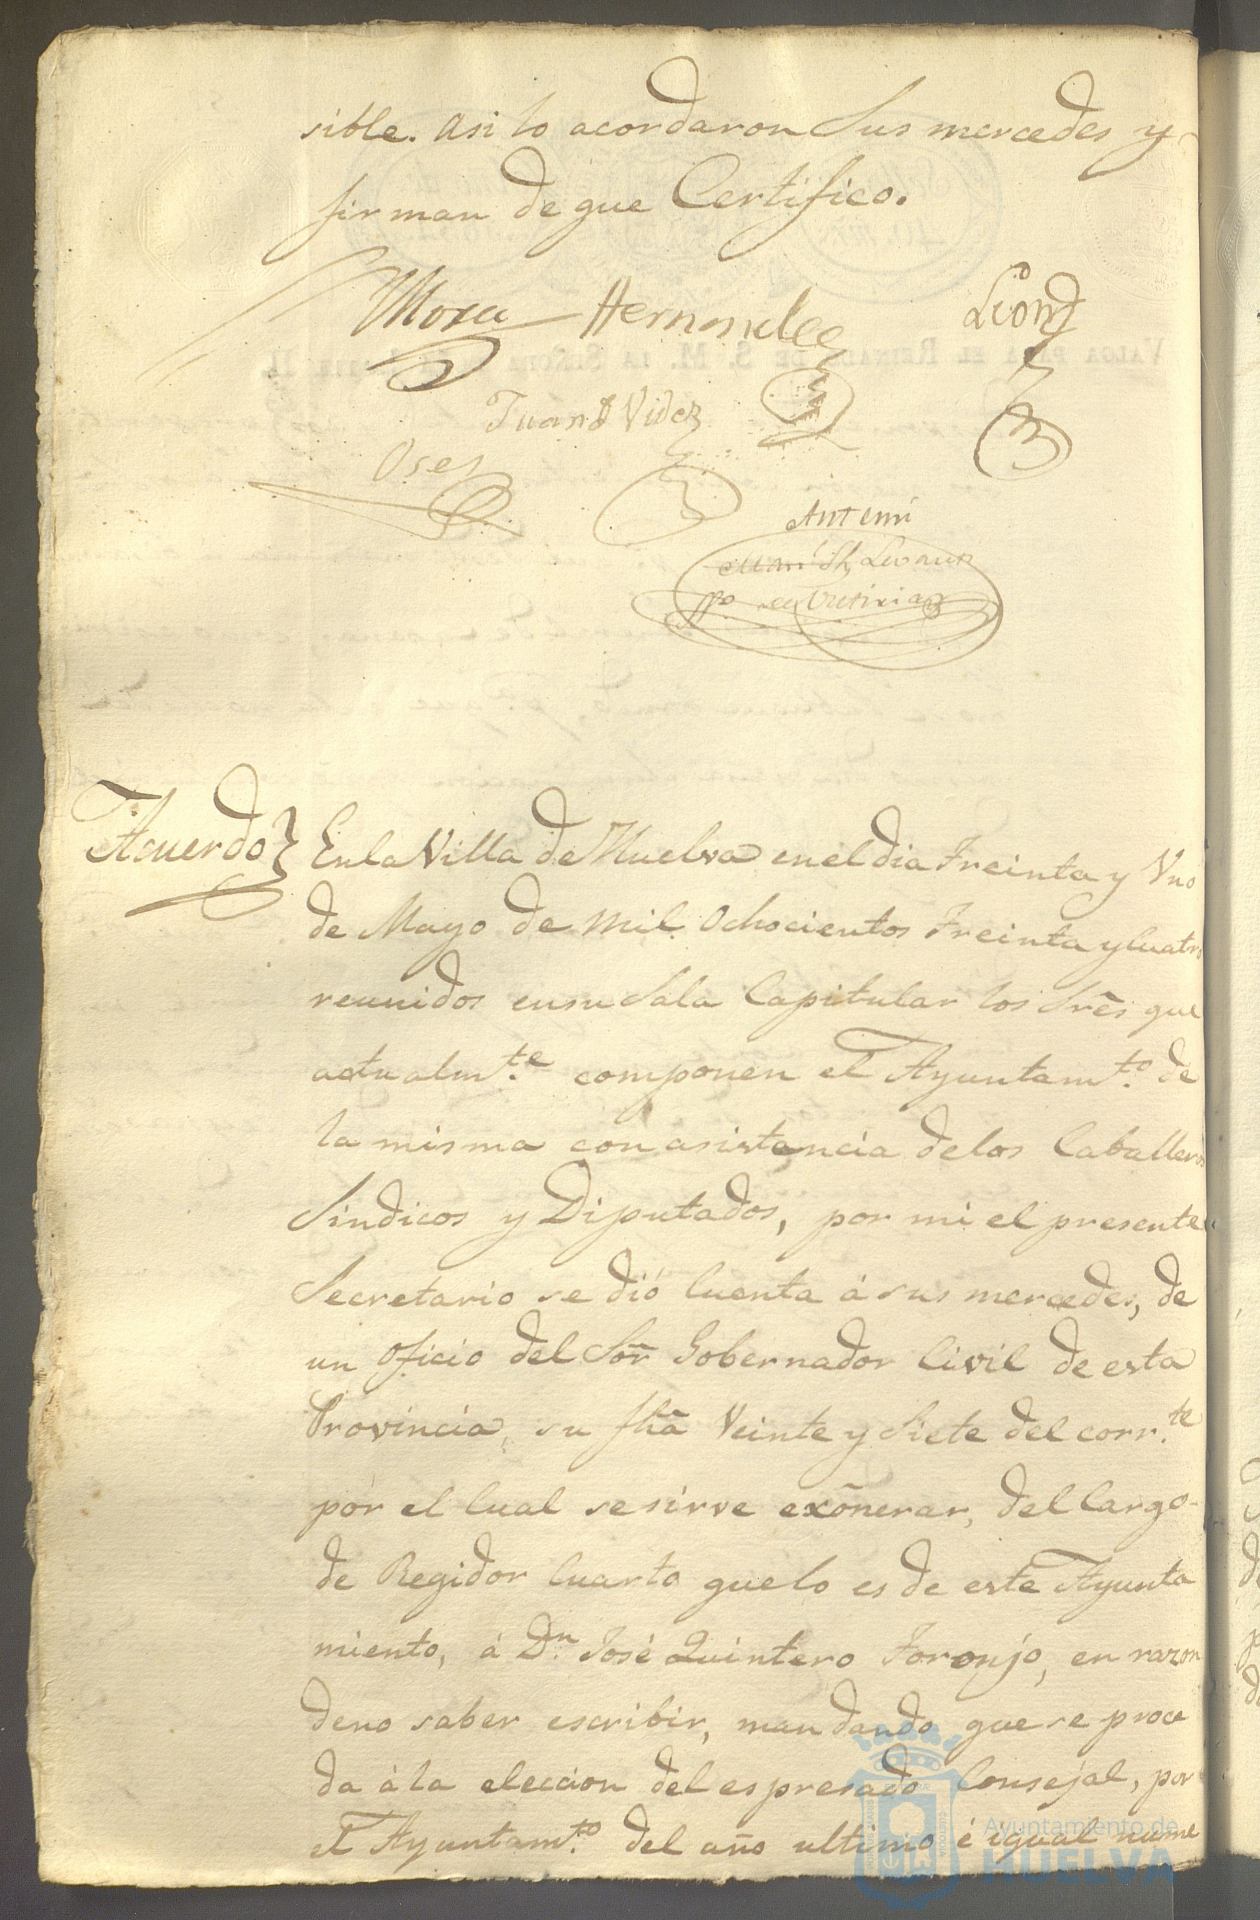 sible. Asi lo acordaron Sus mercedes y
firman de que Certifico.
Mora Hernandez León
Juan Videz
Oses
Antemi
Acuerdo} En la Villa de Huelva en el dia Treinta y Uno
de Mayo de mil Ochocientos Treinta y Cuatro
reunidos en su Sala Capitular los Sres que
actualmte. componen el Ayuntamto. de
la misma con asistencia de los Caballeros
Sindicos y Diputados, por mi el presente
Secretario se dió Cuenta á sus mercedes, de
un Oficio del Sor Gobernador Civil de esta
Provincia, su fha Veinte y Siete del corrte.
por el Cual se sirve exõnerar, del Cargo-
de Regidor Cuarto que lo es de este Ayunta
miento, á Dn. José Quintero Toronjo, en razon
de no saber escribir, mandando que se proce
da á la eleccion del espresado Consejal, por
el Ayuntamto. del año ultimo é igual nume
Ayuntamiento de
HUELVA